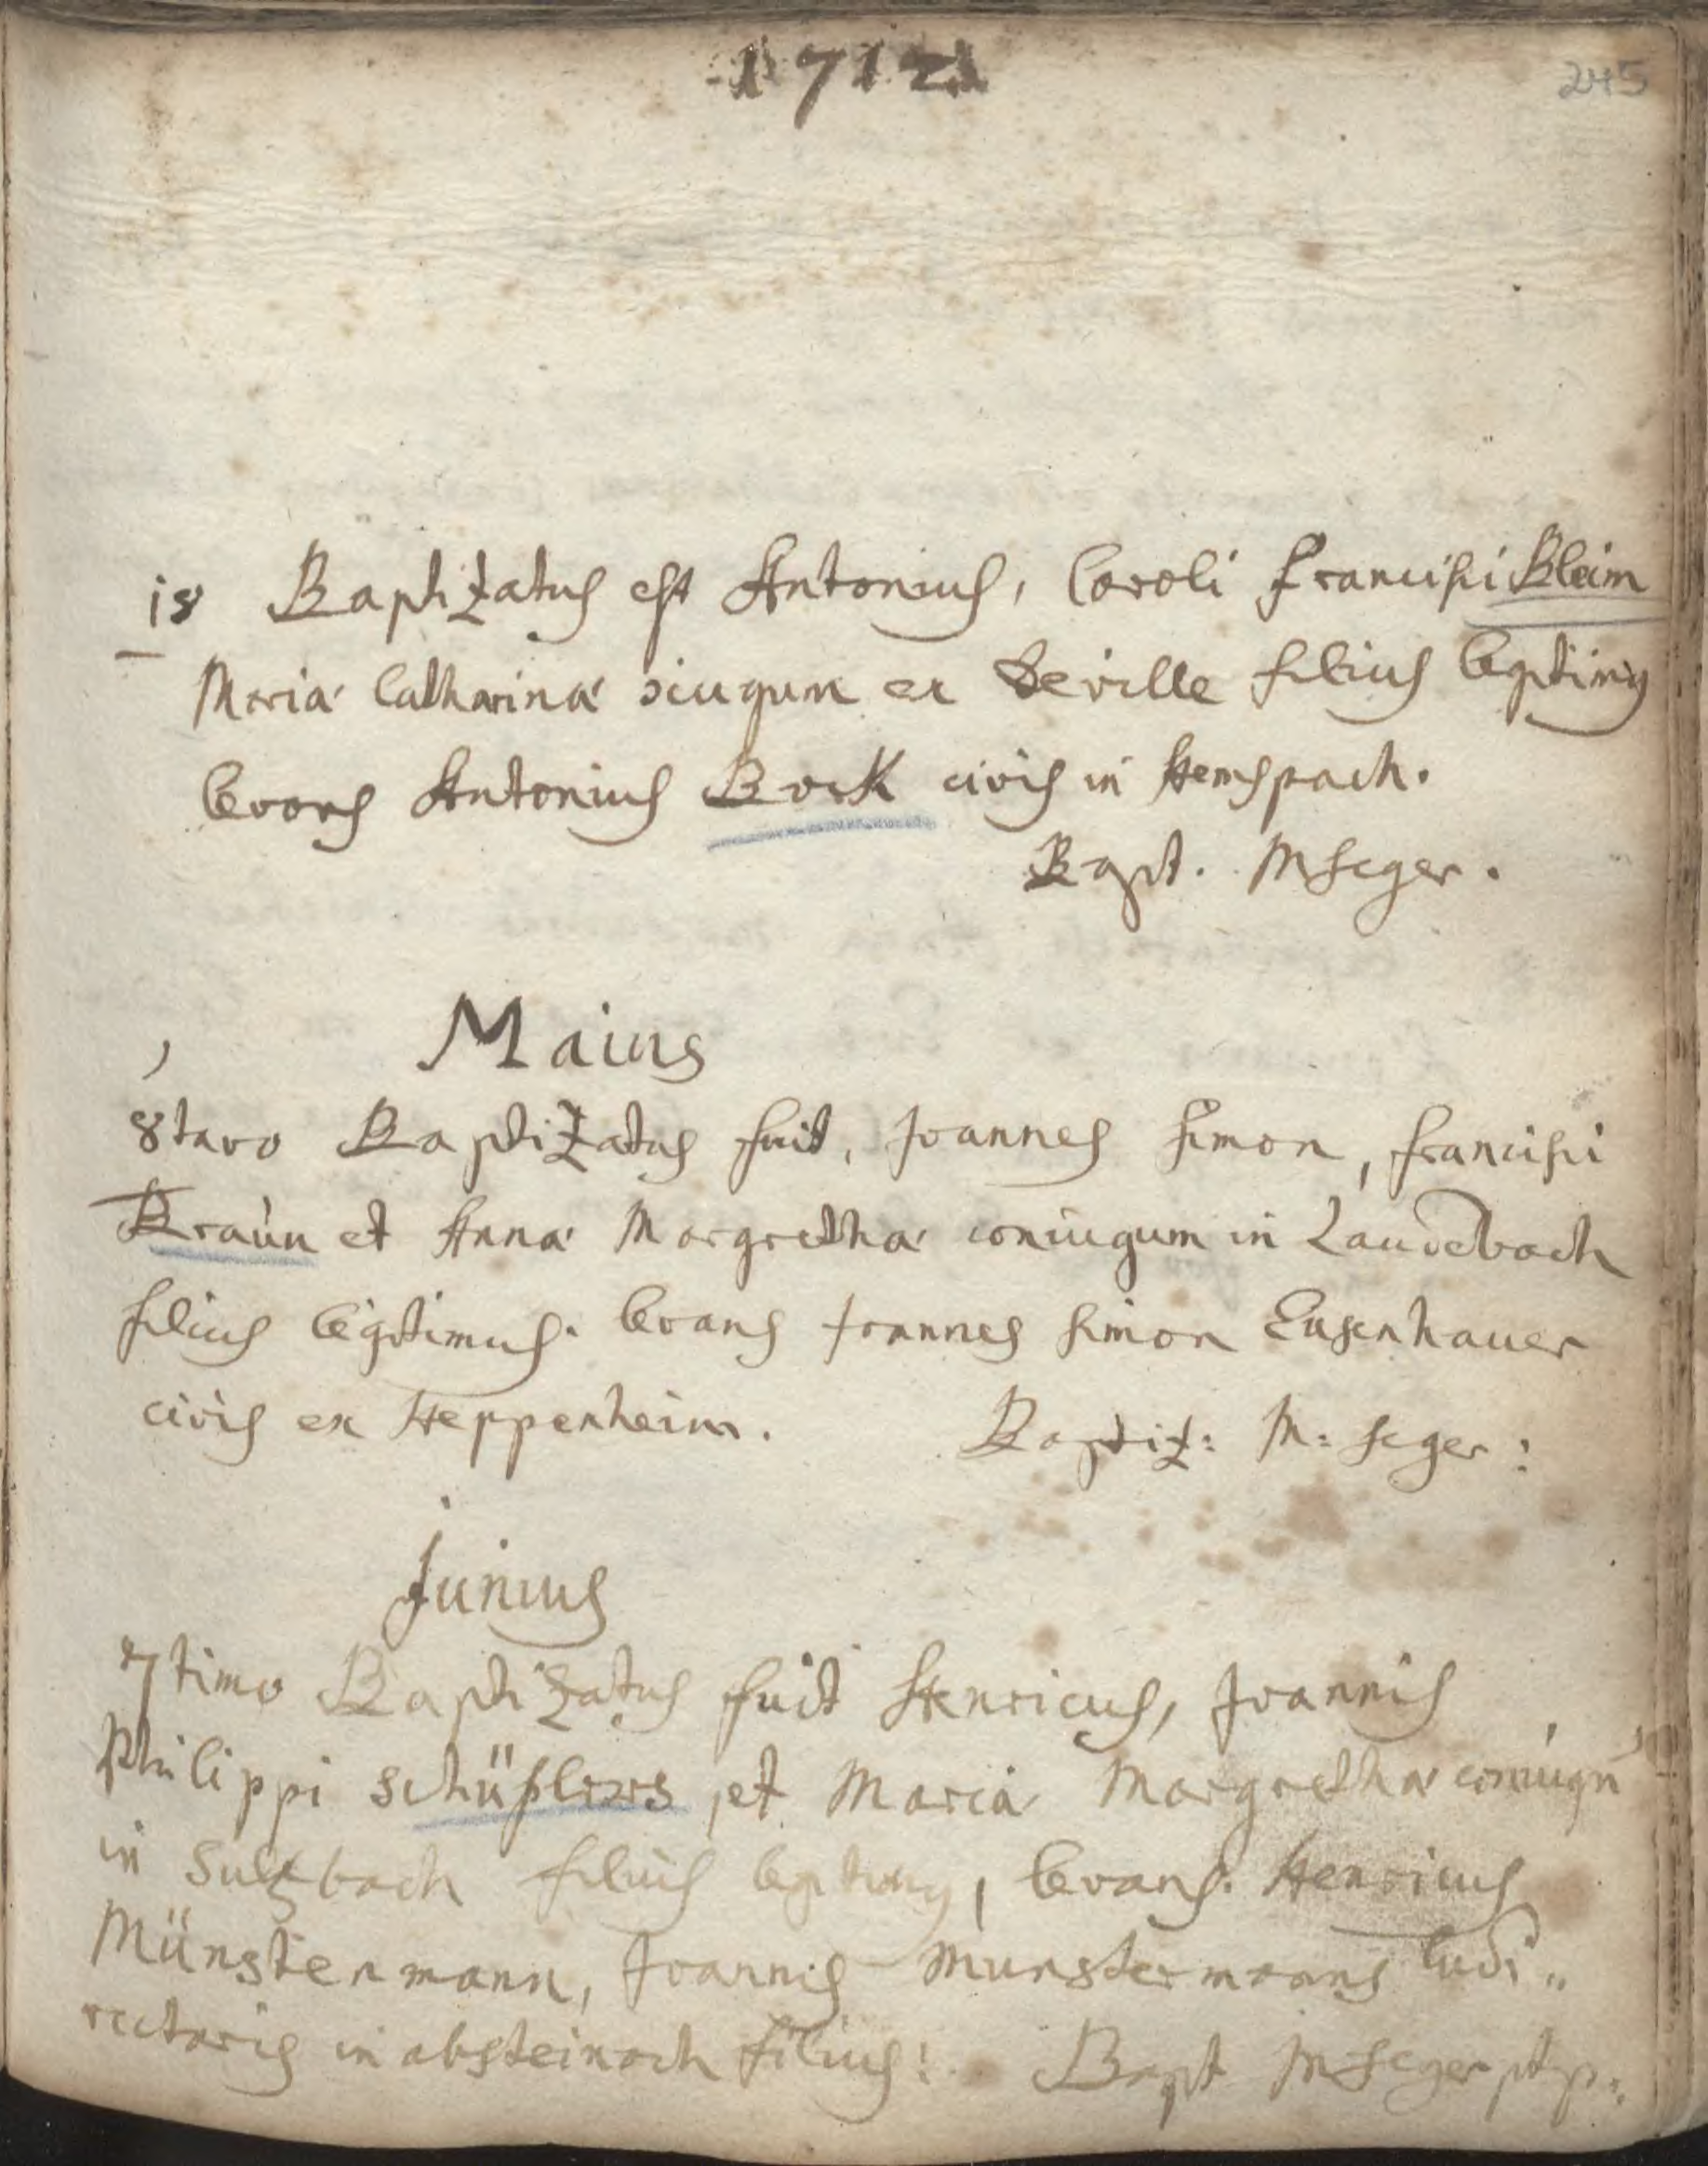 1712
245
18 Baptizatus est Antonius, Caroli Francisci Bleim
Mariæ Catharinæ ex Seville filius legitimus
levans Antonius Bock civis in Hemspach.
Bapt. M Seger.
Maius
8tavo Baptizatus fuit, Joannes Simon, Francisci
Braun et Annæ Margrethæ coniugum in Laudebach
filius legitimus. levans Joannes Simon Eusenhauer
civis ex Heppenheim. Baptiz: M: Seger:
Junius
7timo Baptizatus fuit Henricus, Joannis
Philippi Schüßlers, et Mariæ Margrethæ coniugū
in Sultzbach filius legitimus, levans. Henricus
Münstermann, Joannis Munstermanns ludi„
rectoris in absteinach filius! Bapt M Seger ptp: